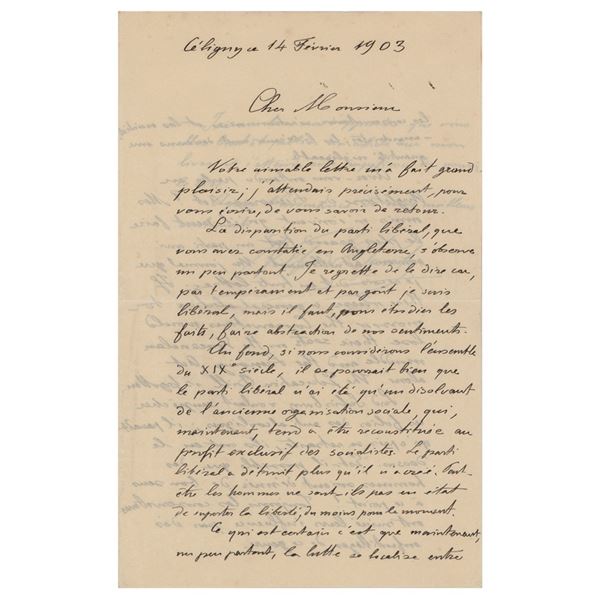 Céligny ce 14 Février 1903
Cher Monsieur
Votre aimable lettre m'a fait grand
plaisir; j'attendais précisément, pour
vous écrire, de vous savoir de retour.
La disparition du parti libéral, que
vous avez constatée en Angleterre, s'observe
un peu partout. Je regrette de le dire car,
par tempérament et par goût je suis
libéral, mais il faut, pour étudier les
faits, faire abstraction de nos sentiments.
Au fond, si nous considérons l'ensemble
du XIXe siècle, il se pourrait bien que
le parti libéral n'ai été qu'un dissolvant
de l'ancienne organisation sociale, qui,
maintenant, tend à être reconstituée au
profit exclusif des socialistes. Le parti
libéral a détruit plus qu'il n'a créé. Peut-
être les hommes ne sont-ils pas en état
de supporter la liberté, du moins pour le moment.
Ce qui est certain c'est que maintenant,
un peu partout, la lutte se localise entre